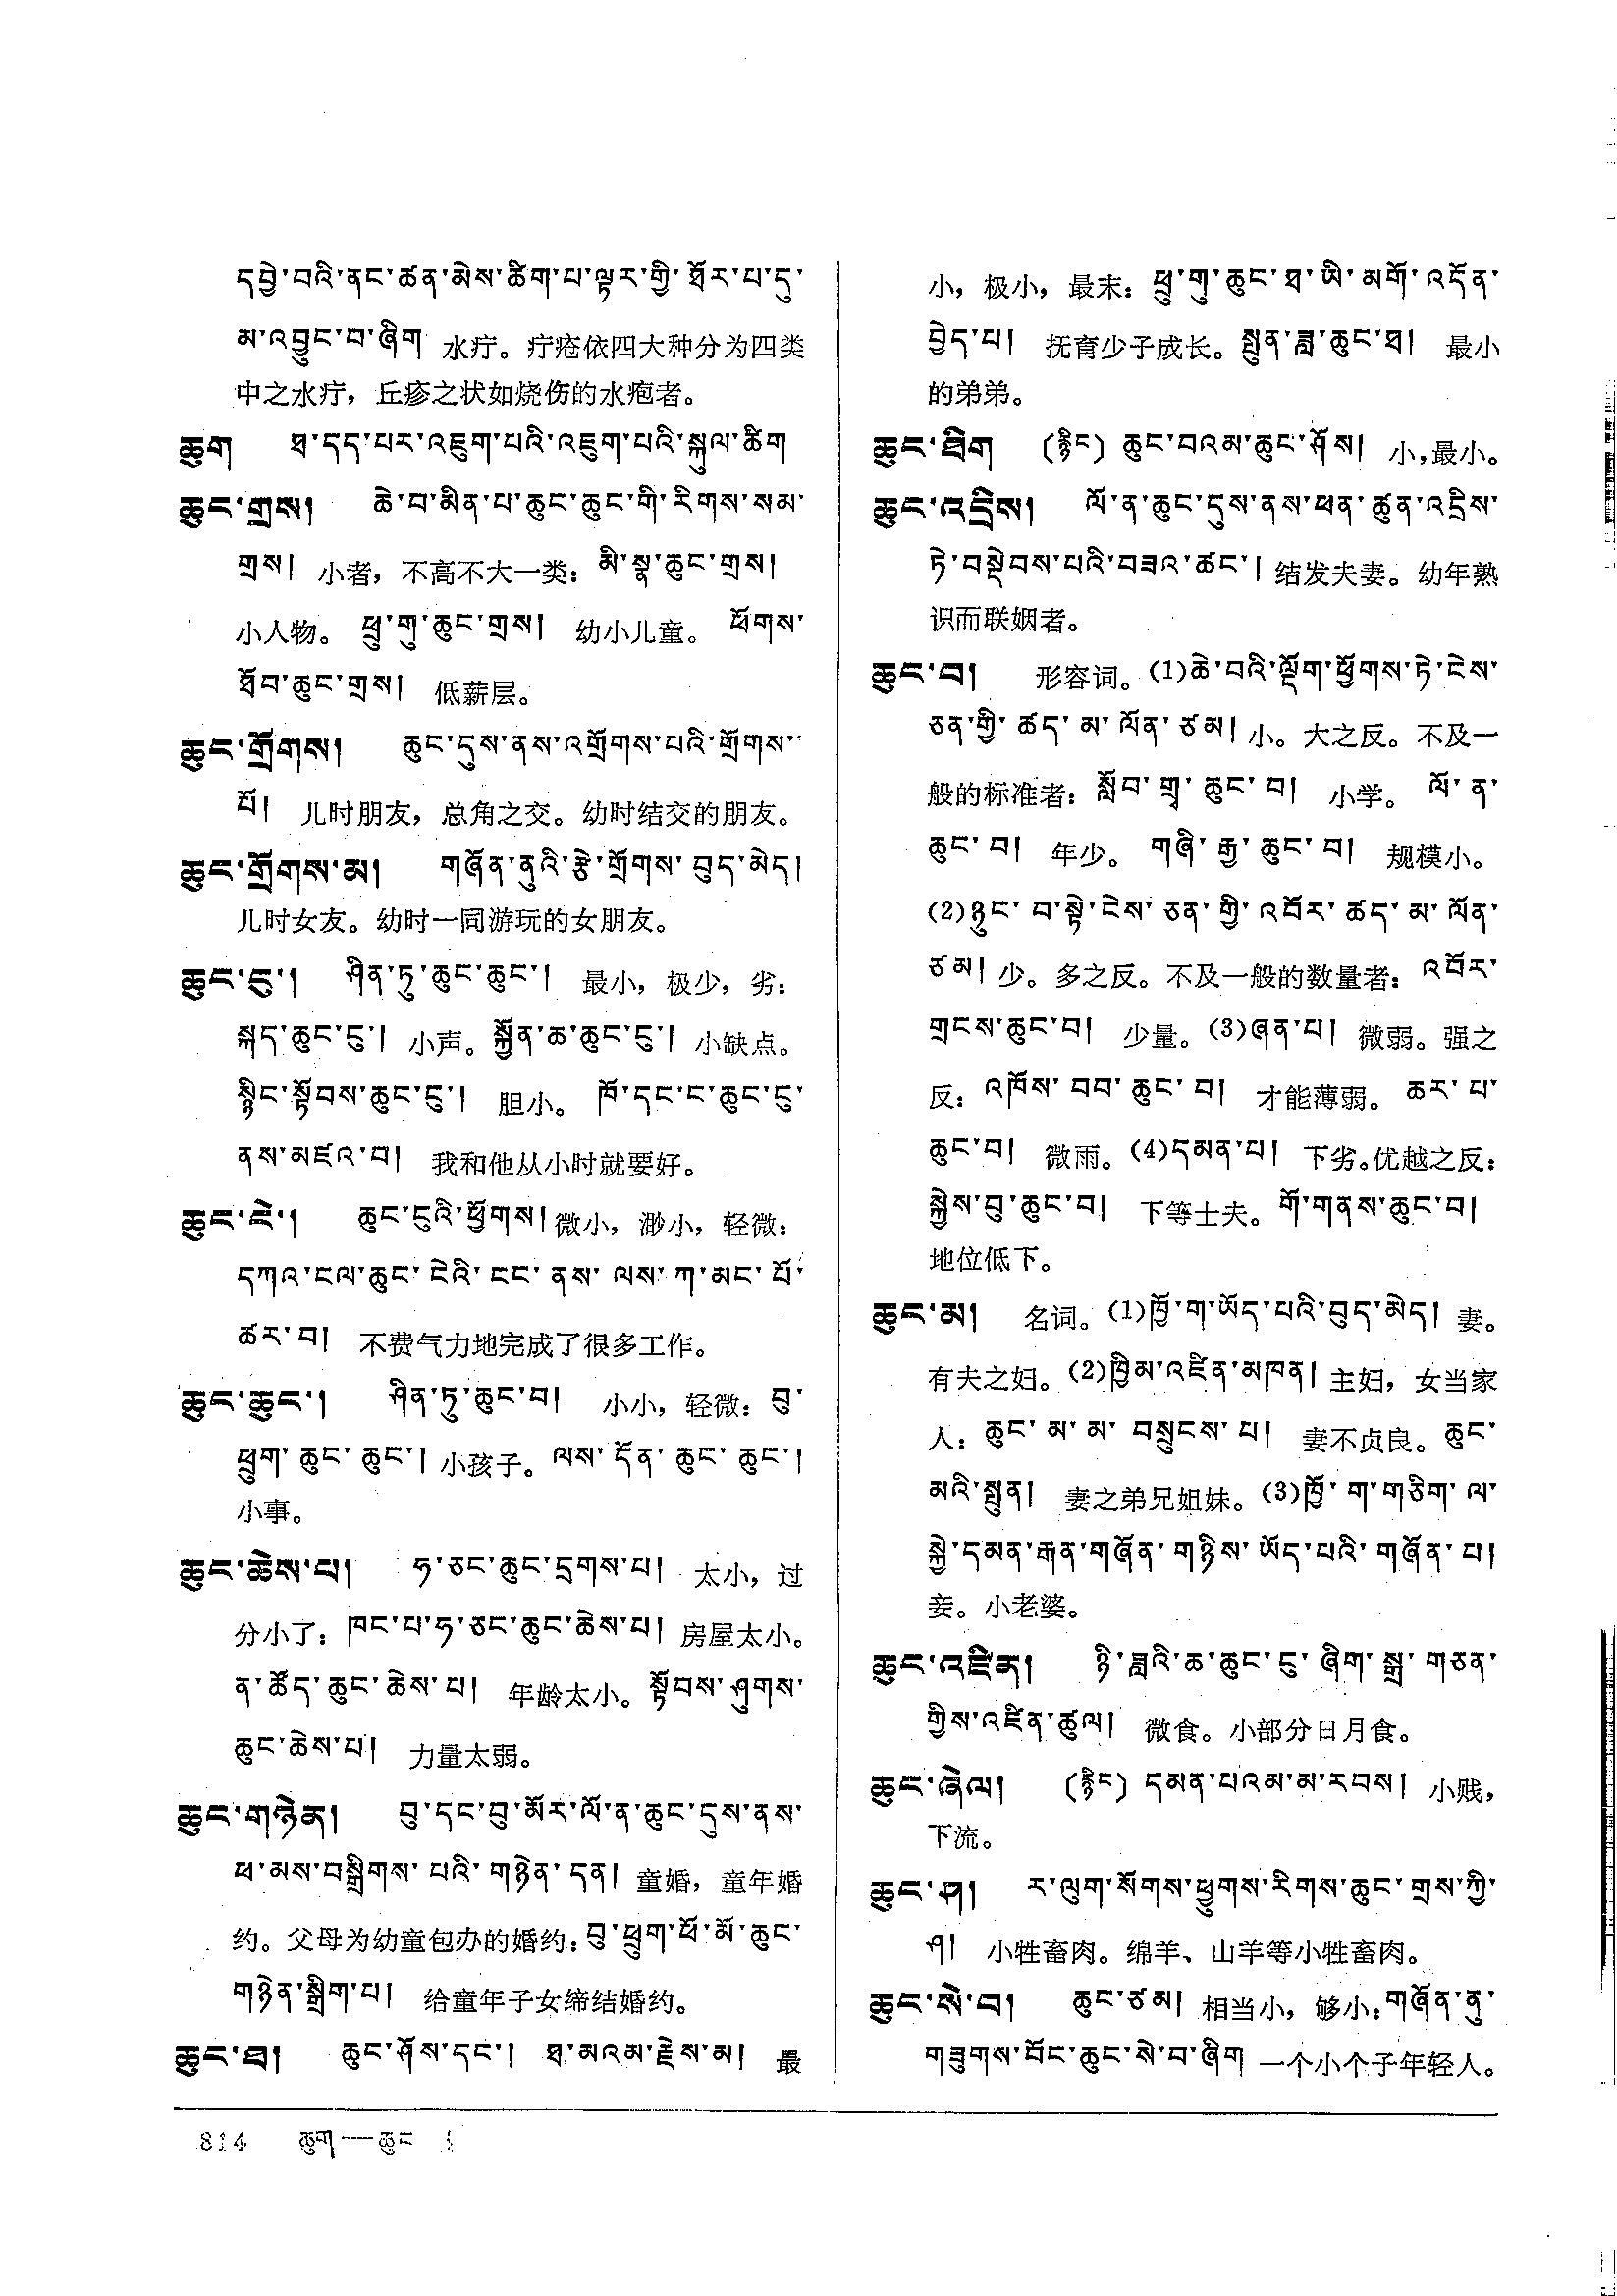 དབྱེ་བའི་ནང་ཚན་མེས་ཚིག་པ་ལྟར་གྱི་ཐོར་པ་དུ་
མ་འབྱུང་བ་ཞིག 水疔。疔疮依四大种分为四类
中之水疔，丘疹之状如烧伤的水疱者。
ཆུག ཐ་དད་པར་འཇུག་པའི་འཇུག་པའི་སྐུལ་ཚིག
ཆུང་གྲས། ཆེ་བ་མིན་པ་ཆུང་ཆུང་གི་རིགས་སམ་
གྲས། 小者，不高不大一类：མི་སྣ་ཆུང་གྲས།
小人物。 ཕྲུ་གུ་ཆུང་གྲས། 幼小儿童。 ཕོགས་
ཐོབ་ཆུང་གྲས། 低薪层。
ཆུང་གྲོགས། ཆུང་དུས་ནས་འགྲོགས་པའི་གྲོགས་
པོ། 儿时朋友，总角之交。幼时结交的朋友。
ཆུང་གྲོགས་མ། གཞོན་ནུའི་རྩེ་གྲོགས་བུད་མེད།
儿时女友。幼时一同游玩的女朋友。
ཆུང་ངུ་། ཤིན་ཏུ་ཆུང་ཆུང་། 最小，极少，劣：
སྐད་ཆུང་ངུ་། 小声。སྐྱོན་ཆ་ཆུང་ངུ་། 小缺点。
སྙིང་སྟོབས་ཆུང་ངུ་། 胆小。 ཁོ་དང་ང་ཆུང་ངུ་
ནས་མཛའ་བ། 我和他从小时就要好。
ཆུང་ངེ་། ཆུང་ངུའི་ཕྱོགས། 微小，渺小，轻微：
དཀའ་ངལ་ཆུང་ངེའི་ངང་ནས་ལས་ཀ་མང་པོ་
ཚར་བ། 不费气力地完成了很多工作。
ཆུང་ཆུང་། ཤིན་ཏུ་ཆུང་བ། 小小，轻微：བུ་
ཕྲུག་ཆུང་ཆུང་། 小孩子。ལས་དོན་ཆུང་ཆུང་།
小事。
ཆུང་ཆེས་པ། ཧ་ཅང་ཆུང་དྲགས་པ། 太小，过
分小了：ཁང་པ་ཧ་ཅང་ཆུང་ཆེས་པ། 房屋太小。
ན་ཚོད་ཆུང་ཆེས་པ། 年龄太小。སྟོབས་ཤུགས་
ཆུང་ཆེས་པ། 力量太弱。
ཆུང་གཉེན། བུ་དང་བུ་མོར་ལོ་ན་ཆུང་དུས་ནས་
ཕ་མས་བསྒྲིགས་པའི་གཉེན་དན། 童婚，童年婚
约。父母为幼童包办的婚约：བུ་ཕྲུག་ཕོ་མོ་ཆུང་
གཉེན་སྒྲིག་པ། 给童年子女缔结婚约。
ཆུང་ཐ། ཆུང་ཤོས་དང་། ཐ་མའམ་རྗེས་མ། 最
小，极小，最末：ཕྲུ་གུ་ཆུང་ཐ་ཡི་མགོ་འདོན་
བྱེད་པ། 抚育少子成长。སྤུན་ཟླ་ཆུང་ཐ། 最小
的弟弟。
ཆུང་ཐིག (རྙིང) ཆུང་བའམ་ཆུང་ཤོས། 小，最小。
ཆུང་འདྲིས། ལོ་ན་ཆུང་དུས་ནས་ཕན་ཚུན་འདྲིས་
ཏེ་བསྡེབས་པའི་བཟའ་ཚང་། 结发夫妻。幼年熟
识而联姻者。
ཆུང་བ། 形容词。(1)ཆེ་བའི་ལྡོག་ཕྱོགས་ཏེ་ངེས་
ཅན་གྱི་ཚད་མ་ལོན་ཙམ། 小。大之反。不及一
般的标准者：སློབ་གྲྭ་ཆུང་བ། 小学。 ལོ་ན་
ཆུང་བ། 年少。 གཞི་རྒྱ་ཆུང་བ། 规模小。
(2)ཉུང་བ་སྟེ་ངེས་ཅན་གྱི་འབོར་ཚད་མ་ལོན་
ཙམ། 少。多之反。不及一般的数量者：འབོར་
གྲངས་ཆུང་བ། 少量。(3)ཞན་པ། 微弱。强之
反：འཁོས་བབ་ཆུང་བ། 才能薄弱。 ཆར་པ་
ཆུང་བ། 微雨。(4)དམན་པ། 下劣。优越之反：
སྐྱེས་བུ་ཆུང་བ། 下等士夫。གོ་གནས་ཆུང་བ།
地位低下。
ཆུང་མ། 名词。(1)ཁྱོ་ག་ཡོད་པའི་བུད་མེད། 妻。
有夫之妇。(2)ཁྱིམ་འཛིན་མཁན། 主妇，女当家
人：ཆུང་མ་མ་བསྲུངས་པ། 妻不贞良。ཆུང་
མའི་སྤུན། 妻之弟兄姐妹。(3)ཁྱོ་ག་གཅིག་ལ་
སྐྱེ་དམན་རྒན་གཞོན་གཉིས་ཡོད་པའི་གཞོན་པ།
妾。小老婆。
ཆུང་འཛིན། ཉི་ཟླའི་ཆ་ཆུང་ངུ་ཞིག་སྒྲ་གཅན་
གྱིས་འཛིན་ཚུལ། 微食。小部分日月食。
ཆུང་ཞེལ། (རྙིང) དམན་པའམ་མ་རབས། 小贱，
下流。
ཆུང་ཤ། ར་ལུག་སོགས་ཕྱུགས་རིགས་ཆུང་གྲས་ཀྱི་
ཤ། 小牲畜肉。绵羊、山羊等小牲畜肉。
ཆུང་སེ་བ། ཆུང་ཙམ། 相当小，够小：གཞོན་ནུ་
གཟུགས་བོང་ཆུང་སེ་བ་ཞིག 一个小个子年轻人。
814 ཆུག—ཆུང